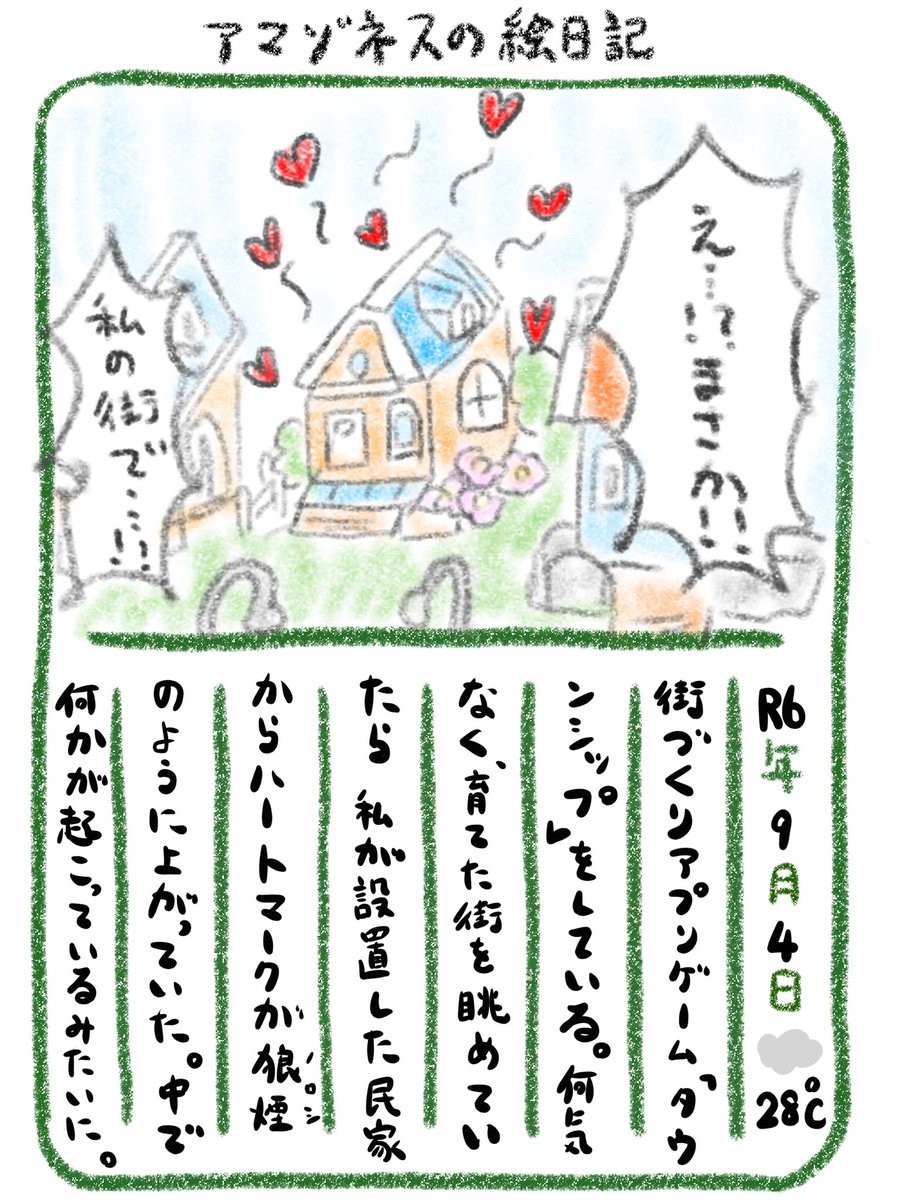 アマゾネスの絵日記
え…!?まさか!!
私の街で…!?
R6年9月4日 28℃
街づくりアプリゲーム「タウ
ンシップ」をしている。何気
なく、育てた街を眺めてい
たら 私が設置した民家
からハートマークが狼煙
ノロシ
のように上がっていた。中で
何かが起こっているみたいに。